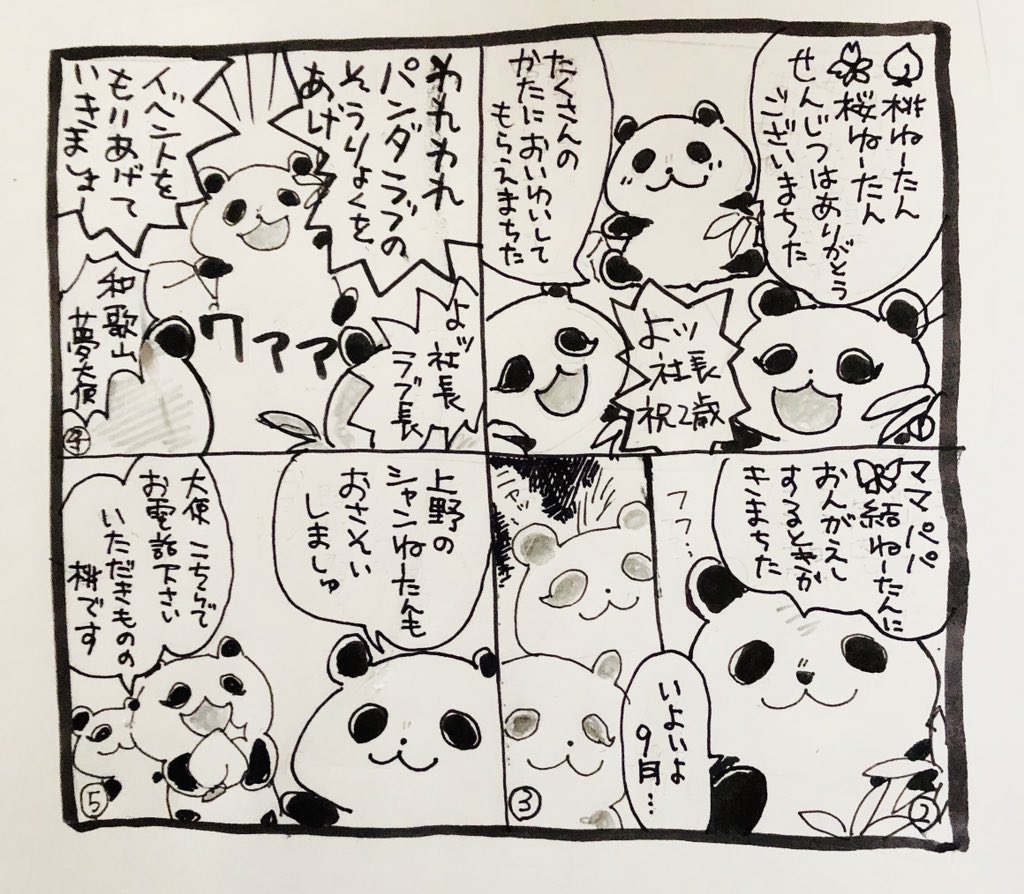 桃ねーたん
桜ねーたん
せんじつはありがとう
ございまちた
たくさんの
かたにおいわいして
もらえまちた
よッ
社長
祝2歳
①
ママ パパ
結ねーたんに
おんがえし
するときが
きまちた
フフ…
いよいよ
9月…
②
③
われわれ
パンダラブの
そうりょくを
あげ
イベントを
もりあげて
いきましゅ
よッ 社長
ラブ長
ワァァ
和歌山
夢大使
④
上野の
シャンねーたんも
おさそい
しましゅ
大使 こちらで
お電話下さい
いただきものの
桃です
⑤